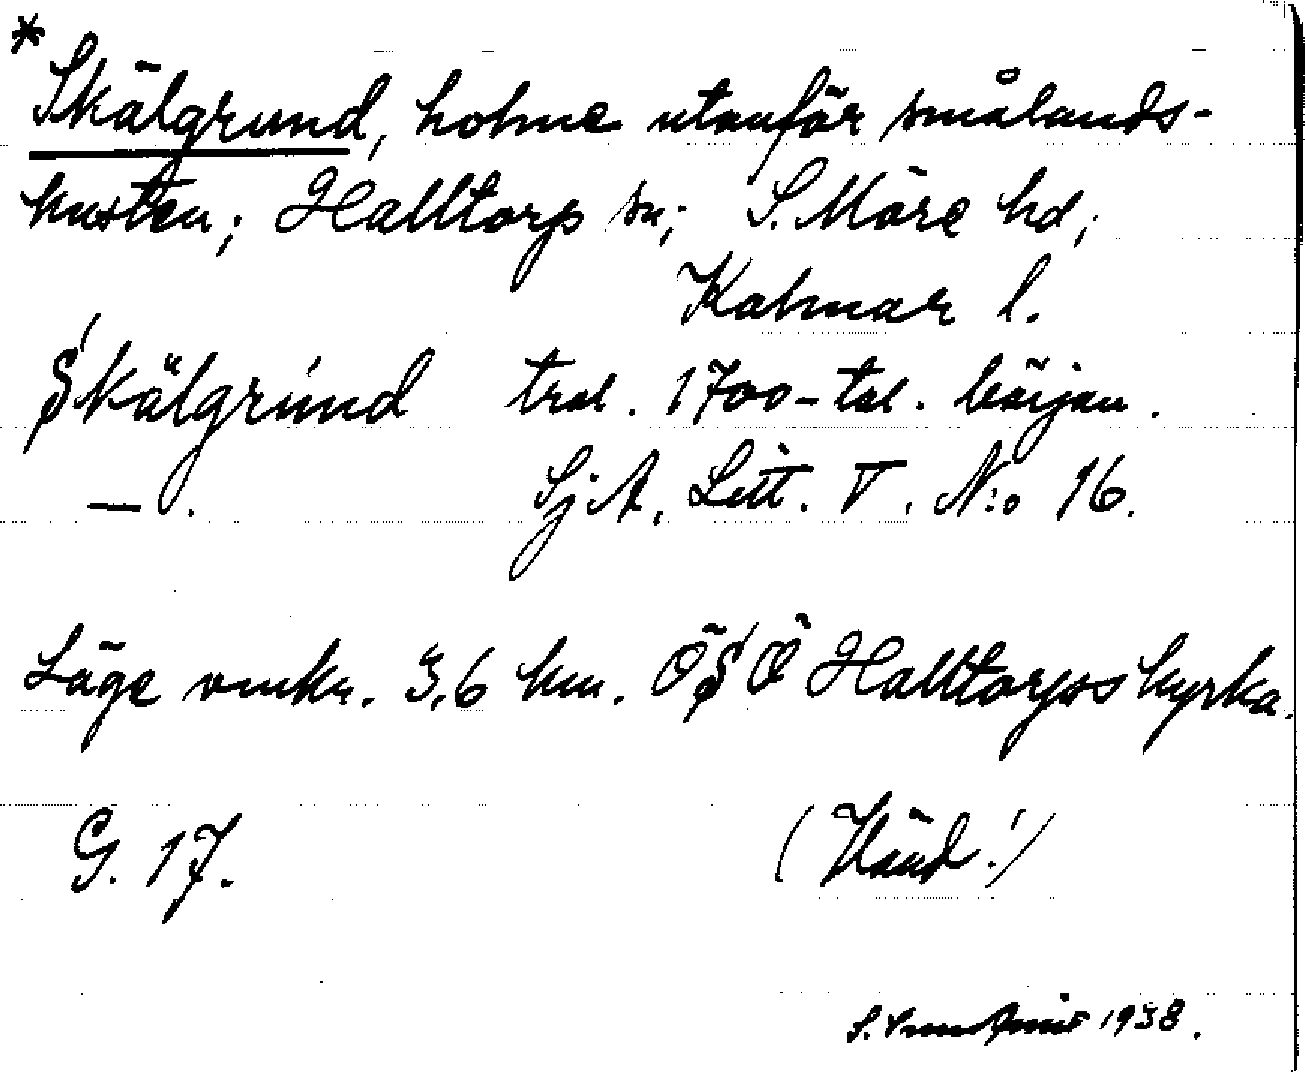 * Skälgrund, holme utanför smålands-
kusten; Halltorp sn; S. Möre hd;
Kalmar l.
Skälgrund trol. 1700-tal. början.
— . SjA, Litt. T. N:o 16.
Läge omkr. 3,6 km. ÖSÖ Halltorps kyrka.
G. 17. (Känd!)
S. 1938.